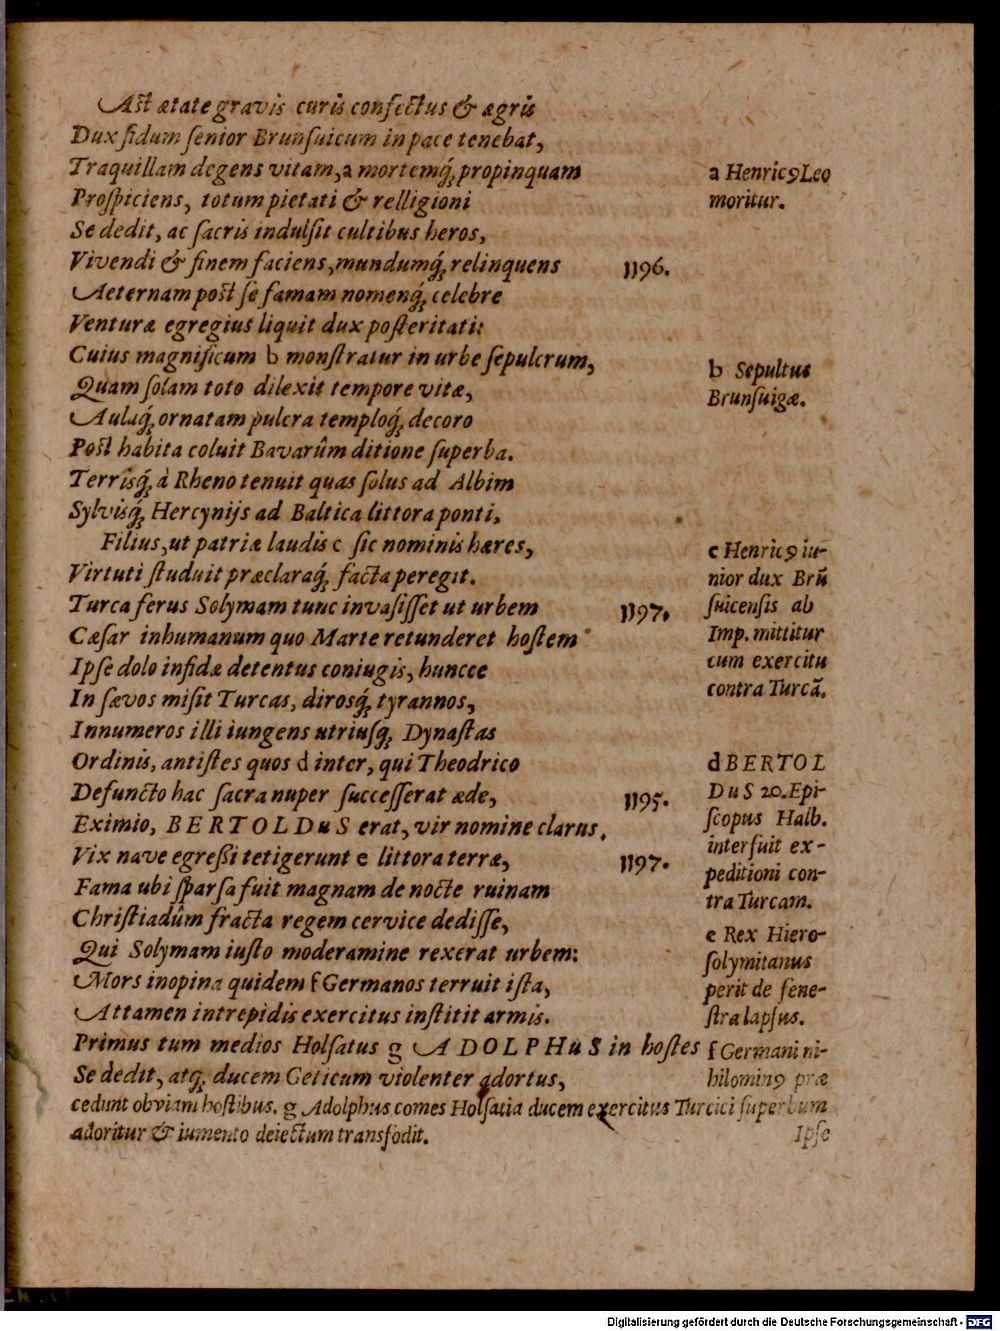 Ast ætate gravis curis confectus & ægris
Dux fidum senior Brunsuicum in pace tenebat,
Traquillam degens vitam, a mortemq́; propinquam
Prospiciens, totum pietati & relligioni
Se dedit, ac sacris indulsit cultibus heros,
Vivendi & finem faciens, mundumq́; relinquens 1196.
Aeternam post se famam nomenq́; celebre
Venturæ egregius liquit dux posteritati:
Cuius magnificum b monstratur in urbe sepulcrum,
Quam solam toto dilexit tempore vitæ,
Aulaq́; ornatam pulcra temploq́; decoro
Post habita coluit Bavarûm ditione superba.
Terrisq́; à Rheno tenuit quas solus ad Albim
Sylvisq́; Hercynijs ad Baltica littora ponti,
Filius, ut patriæ laudis c sic nominis hæres,
Virtuti studuit præclaraq́; facta peregit.
Turca ferus Solymam tunc invasisset ut urbem 1197.
Cæsar inhumanum quo Marte retunderet hostem
Ipse dolo infidæ detentus coniugis, huncce
In sævos misit Turcas, dirosq́; tyrannos,
Innumeros illi iungens utriusq; Dynastas
Ordinis, antistes quos d inter, qui Theodrico
Defuncto hac sacra nuper successerat æde, 1195.
Eximio, BERTOLDuS erat, vir nomine clarus.
Vix nave egreßi tetigerunt e littora terræ, 1197.
Fama ubi sparsa fuit magnam de nocte ruinam
Christiadûm fracta regem cervice dedisse,
Qui Solymam iusto moderamine rexerat urbem:
Mors inopina quidem f Germanos terruit ista,
Attamen intrepidis exercitus institit armis.
Primus tum medios Holsatus g ADOLPHuS in hostes
Se dedit, atq; ducem Geticum violenter adortus,
a Henricꝰ Leo
moritur.
b Sepultus
Brunsuigæ.
c Henricꝰ iu-
nior dux Brũ
suicensis ab
Imp. mittitur
cum exercitu
contra Turcã.
d BERTOL
DuS 20. Epi-
scopus Halb.
interfuit ex-
peditioni con-
tra Turcam.
e Rex Hiero-
solymitanus
perit de fene-
stra lapsus.
f Germani ni-
hilominꝰ præ
cedunt obviam hostibus. g Adolphus comes Holsatia ducem exercitus Turcici superbum
adoritur & iumento deiectum transfodit.
Ipse
Digitalisierung gefördert durch die Deutsche Forschungsgemeinschaft - DFG